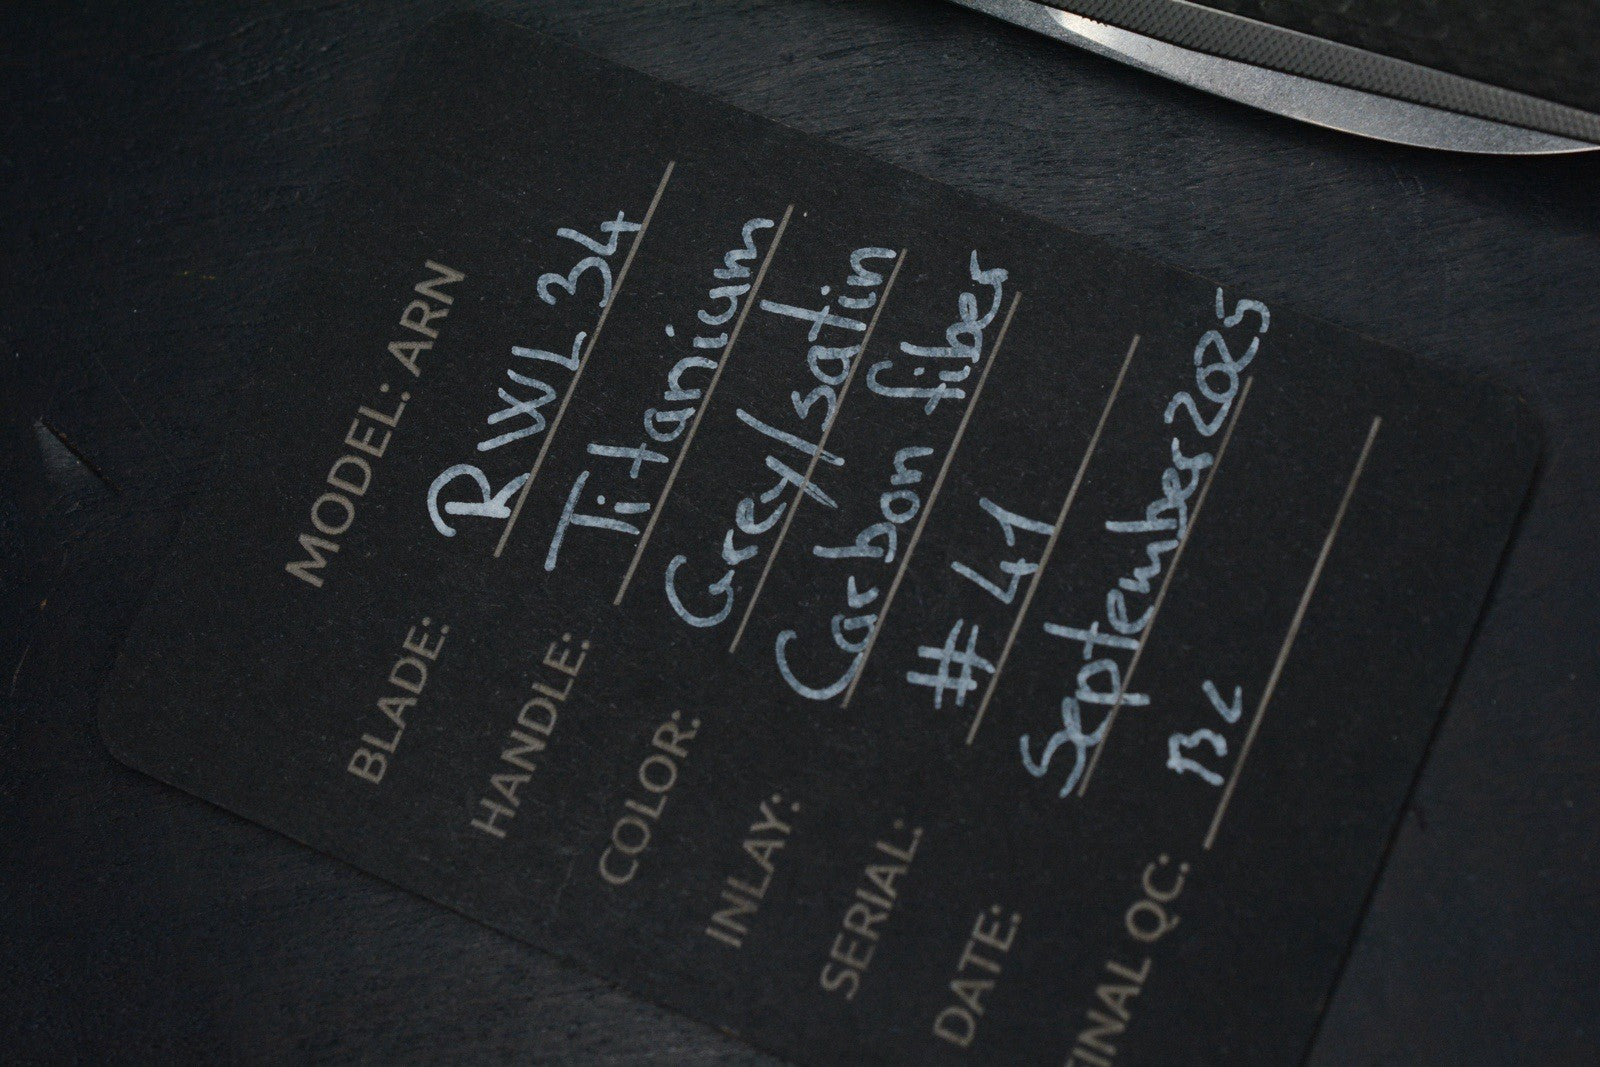 MODEL: ARN
BLADE: RWL34
HANDLE: Titanium
COLOR: Grey/satin
INLAY: Carbon fiber
SERIAL: #41
DATE: September 2025
FINAL QC: BC